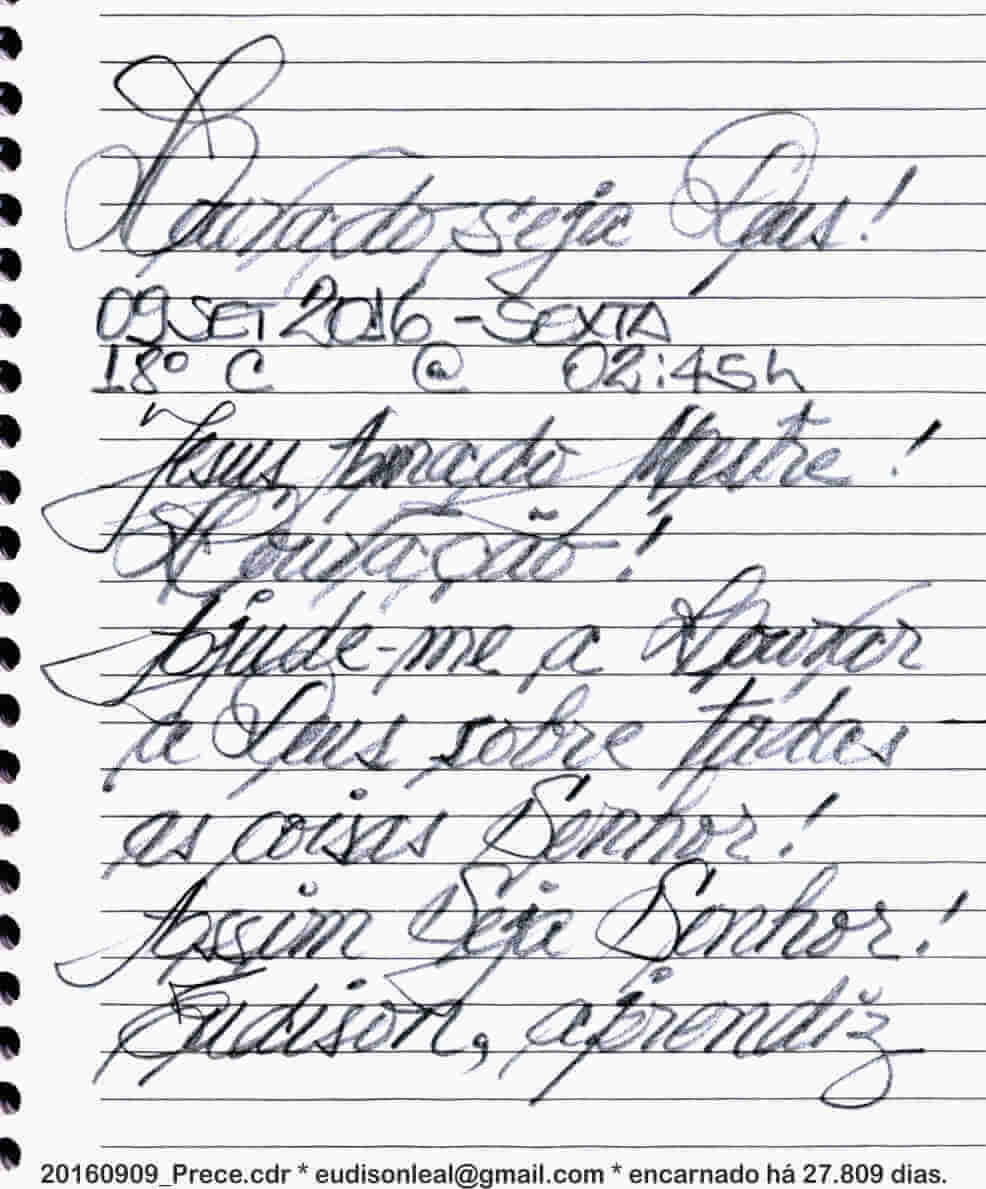 Louvado seja Deus!
09 SET 2016 - SEXTA
18º C @ 02:45h
Jesus Amado Mestre!
Louvação!
Ajude-me a Louvar
a Deus sobre todas
as coisas Senhor!
Assim Seja Senhor!
Eudison, aprendiz
20160909_Prece.cdr * eudisonleal@gmail.com * encarnado há 27.809 dias.